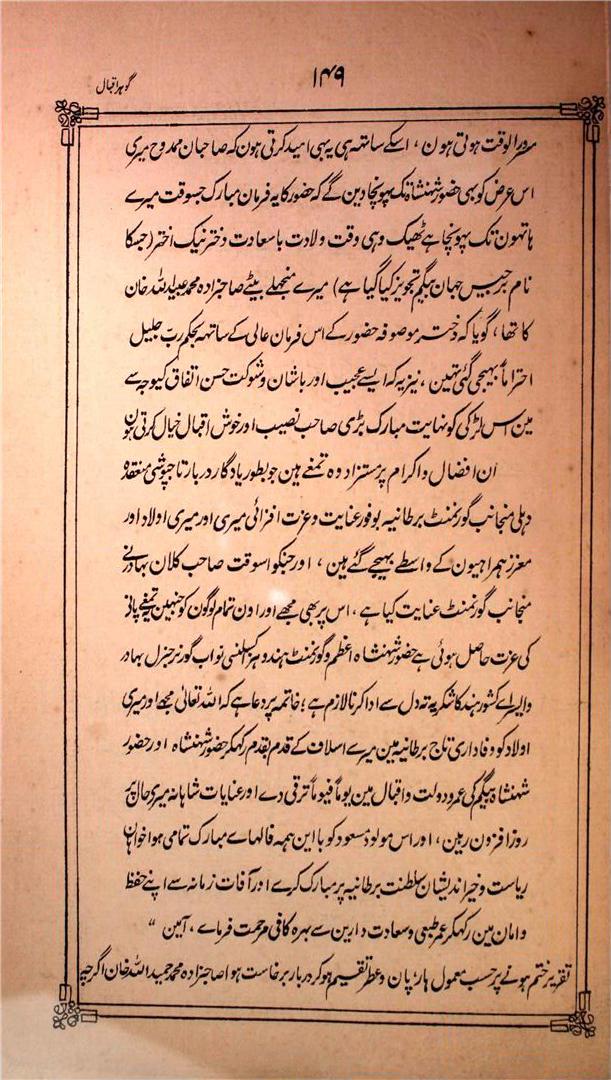 ۱۴۹
گوہر اقبال
سرورالوقت ہوتی ہون ، اسکے ساتھ ہی یہ بھی امید کرتی ہون کہ صاحبان ممدوح میری
اس عرض کو بھی حضور شہنشاہ تک پہونچادین گے کہ حضور کا یہ فرمان مبارک جسوقت میرے
ہاتھون تک پہونچا ہے ٹھیک وہی وقت ولادت باسعادت دختر نیک اختر (جسکا
نام برجیس جہان بیگم تجویز کیا گیا ہے) میرے منجھلے بیٹے صاحبزادہ محمد عبیداللہ خان
کا تھا ، گویا کہ دختر موصوفہ حضور کے اس فرمان عالی کے ساتھ بحکم رب جلیل
احتراماً بھیجی گئی تھین ، نیز یہ کہ ایسے عجیب اور باشان وشوکت حسن اتفاق کیوجہ سے
مین اس لڑکی کو نہایت مبارک بڑی صاحب نصیب اور خوش اقبال خیال کرتی ہون
ان افضال و اکرام پر مستزاد وہ تمغے ہین جو بطور یادگار دربار تاجپوشی منعقدہ
دہلی منجانب گورنمنٹ برطانیہ بوفور عنایت وعزت افزائی میری اور میری اولاد اور
معزز ہمراہیون کے واسطے بھیجے گئے ہین ، اور جنکو اسوقت صاحب کلان بہادر نے
منجانب گورنمنٹ عنایت کیا ہے ، اس پر بھی مجھے اور اون تمام لوگون کو جنہین یہ تمغے پانے
کی عزت حاصل ہوئی ہے حضور شہنشاہ اعظم وگورنمنٹ ہند وہز اکسلنسی نواب گورنر جنرل بہادر
وایسرائے کشور ہند کا شکریہ تہ دل سے ادا کرنا لازم ہے ؛ خاتمہ پر دعا ہے کہ اللہ تعالیٰ مجھے اور میری
اولاد کو وفاداری تاج برطانیہ مین میرے اسلاف کے قدم بقدم رکھکر حضور شہنشاہ اور حضور
شہنشاہ بیگم کی عمر ودولت واقبال مین یوماً فیوماً ترقی دے اور عنایات شاہانہ میری حال پر
روز افزون رہین ، اور اس مولود مسعود کو با این ہمہ فالہاے مبارک تمامی ہواخواہان
ریاست وخیر اندیشان سلطنت برطانیہ پر مبارک کرے اور آفات زمانہ سے اپنے حفظ
و امان مین رکھکر عمر طبعی وسعادت دارین سے بہرہ کافی مرحمت فرماے ، آمین "
تقریر ختم ہونے پر حسب معمول ہار پان وعطر تقسیم ہو کر دربار برخاست ہوا صاحبزادہ محمد حمیداللہ خان اگرچہ